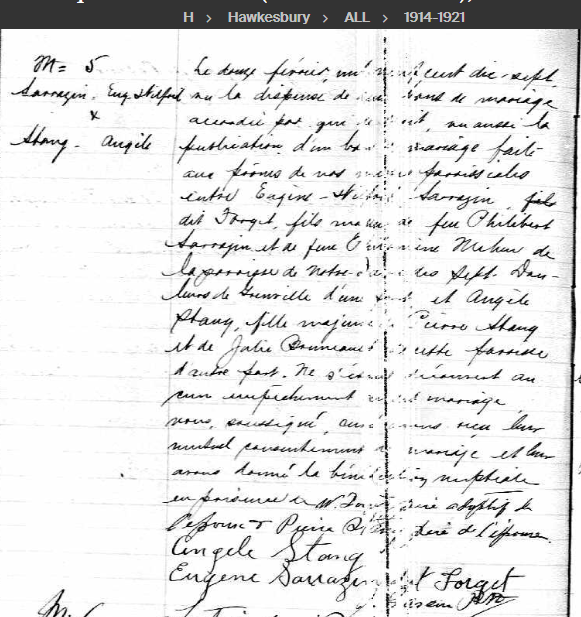 H > Hawkesbury > ALL > 1914-1921
M= 5
Sarrazin, Eug. Wilfrid
x
Stang - Angèle
Le douze février, mil neuf cent dix-sept,
vu la dispense de deux bans de mariage
accordée par qui de droit, vu aussi la
publication d'un ban de mariage faite
aux prônes de nos messes paroissiales
entre Eugène-Wilfrid Sarrazin, fils
dit Forget, fils majeur de feu Philibert
Sarrazin et de feue de
la paroisse de Notre-Dame des Sept Dou-
leurs de Grenville d'une part, et Angèle
Stang, fille majeure de Pierre Stang
et de Julie de cette paroisse
d'autre part. Ne s'étant découvert au
cun empêchement au dit mariage
nous, soussigné, avons reçu leur
mutuel consentement de mariage et leur
avons donné la bénédiction nuptiale
en présence de W. père adoptif de
l'époux & Pierre Stang père de l'épouse.
Angele Stang
Eugene Sarrazin dit Forget
M.